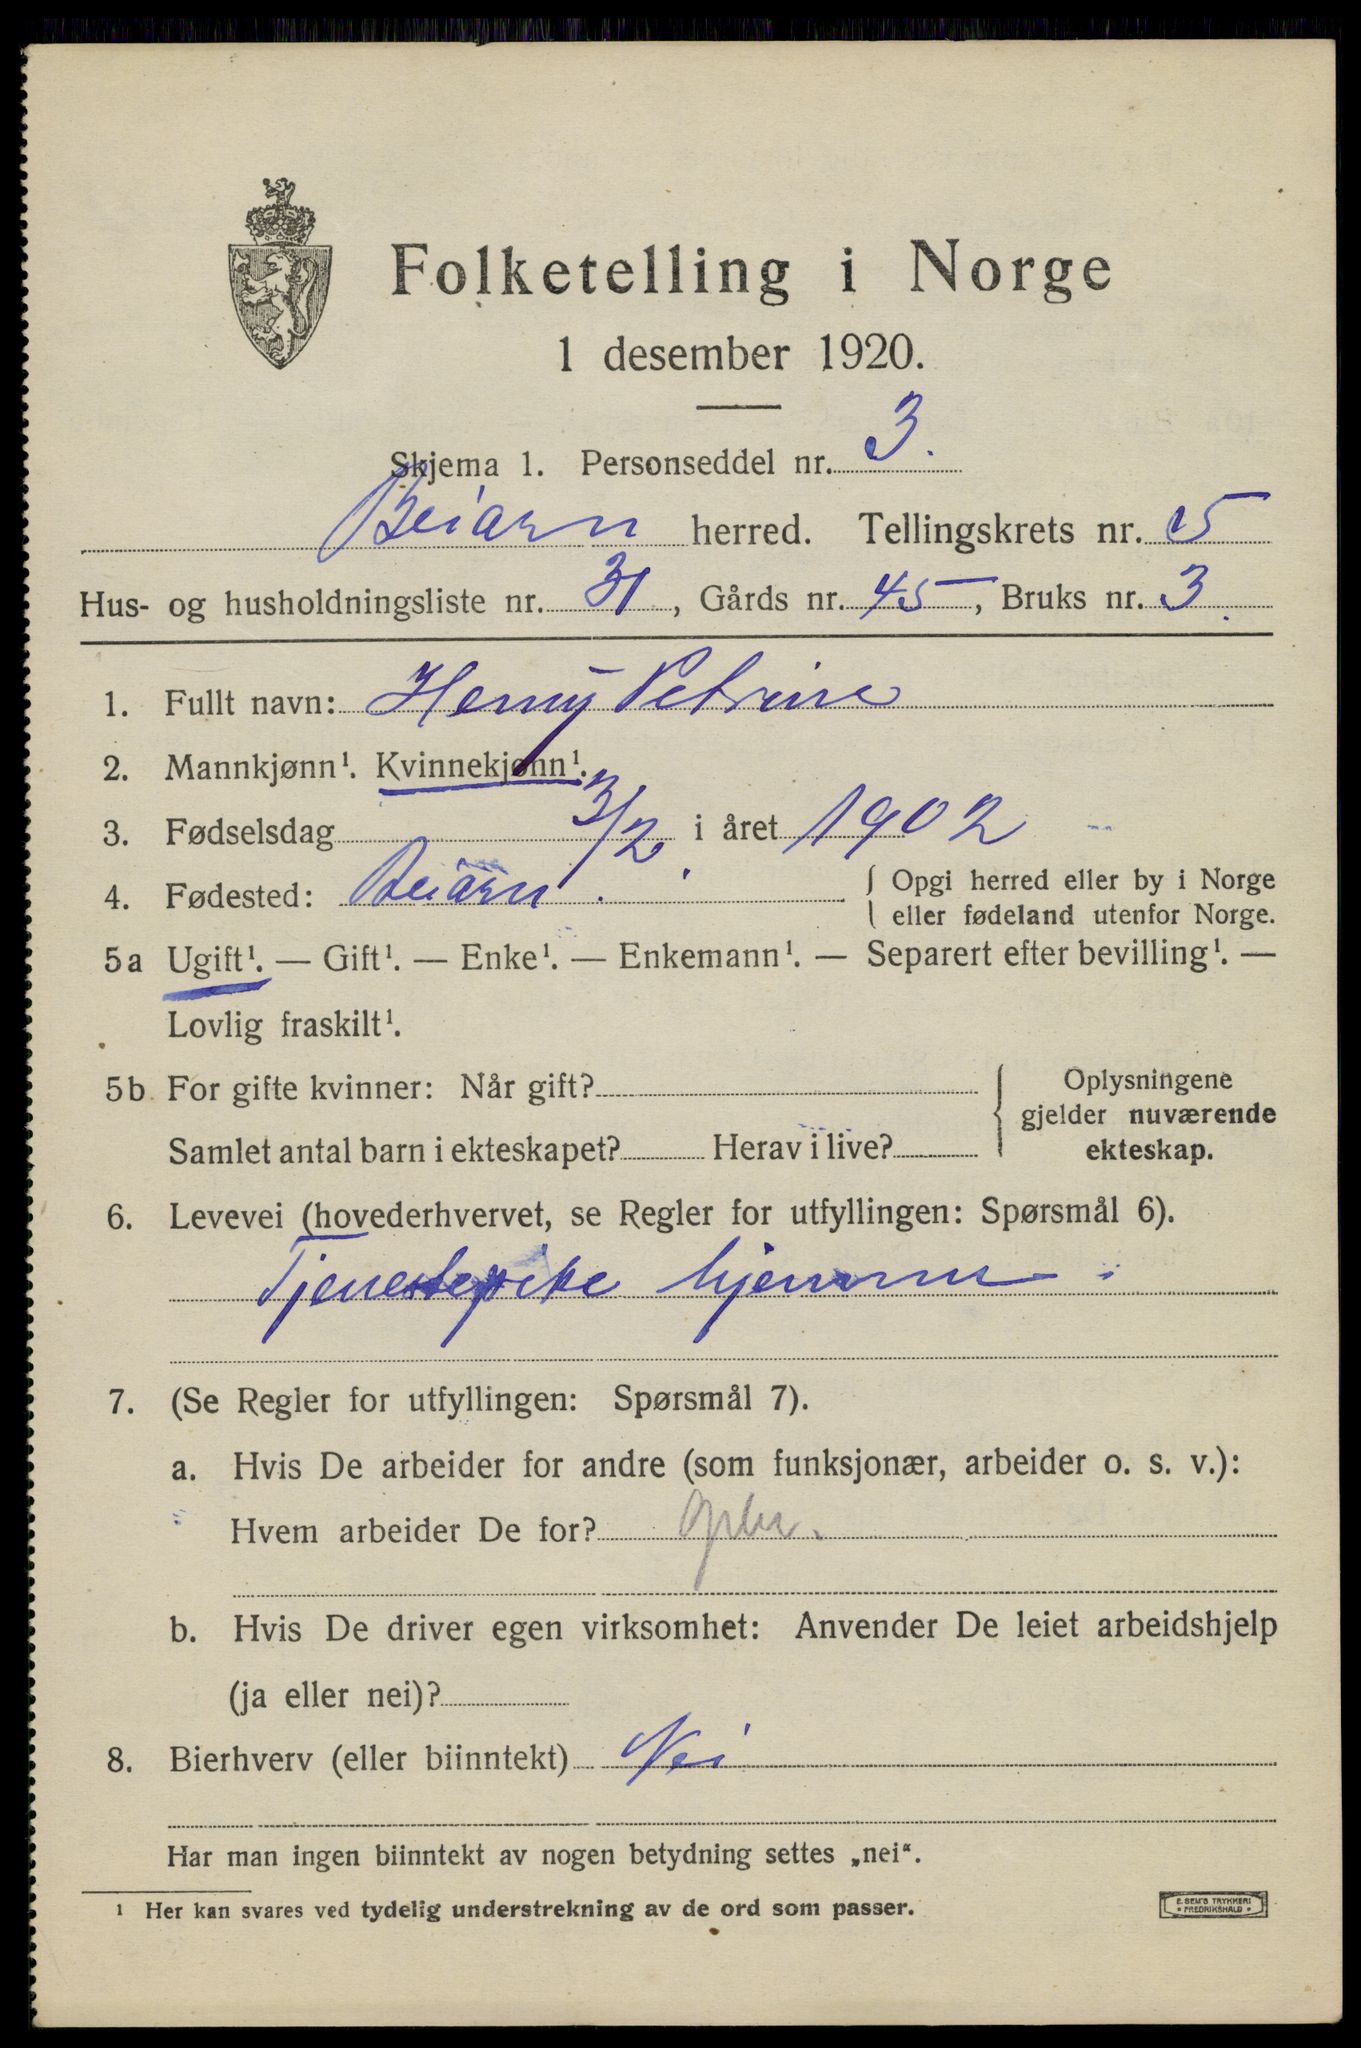 Folketelling i Norge
1 desember 1920.
Skjema 1. Personseddel nr. 3.
Beiarn herred. Tellingskrets nr. 5
Hus- og husholdningsliste nr. 31, Gårds nr. 45, Bruks nr. 3.
1. Fullt navn: Henny Petrine
2. Mannkjønn¹. Kvinnekjønn¹.
3. Fødselsdag 3/2 i året 1902
4. Fødested: Beiarn. { Opgi herred eller by i Norge
eller fødeland utenfor Norge.
5a Ugift¹. — Gift¹. — Enke¹. — Enkemann¹. — Separert efter bevilling¹. —
Lovlig fraskilt¹.
5b For gifte kvinner: Når gift?
Samlet antal barn i ekteskapet? Herav i live?
{ Oplysningene
gjelder nuværende
ekteskap.
6. Levevei (hovederhvervet, se Regler for utfyllingen: Spørsmål 6).
Tjenestepike hjemme.
7. (Se Regler for utfyllingen: Spørsmål 7).
a. Hvis De arbeider for andre (som funksjonær, arbeider o. s. v.):
Hvem arbeider De for?
b. Hvis De driver egen virksomhet: Anvender De leiet arbeidshjelp
(ja eller nei)?
8. Bierhverv (eller biinntekt) Nei
Har man ingen biinntekt av nogen betydning settes „nei“.
¹ Her kan svares ved tydelig understrekning av de ord som passer.
E. SEM'S TRYKKERI
• FREDRIKSHALD •